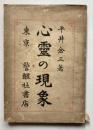 平井金三著
心靈の現象
東京 警醒社書店